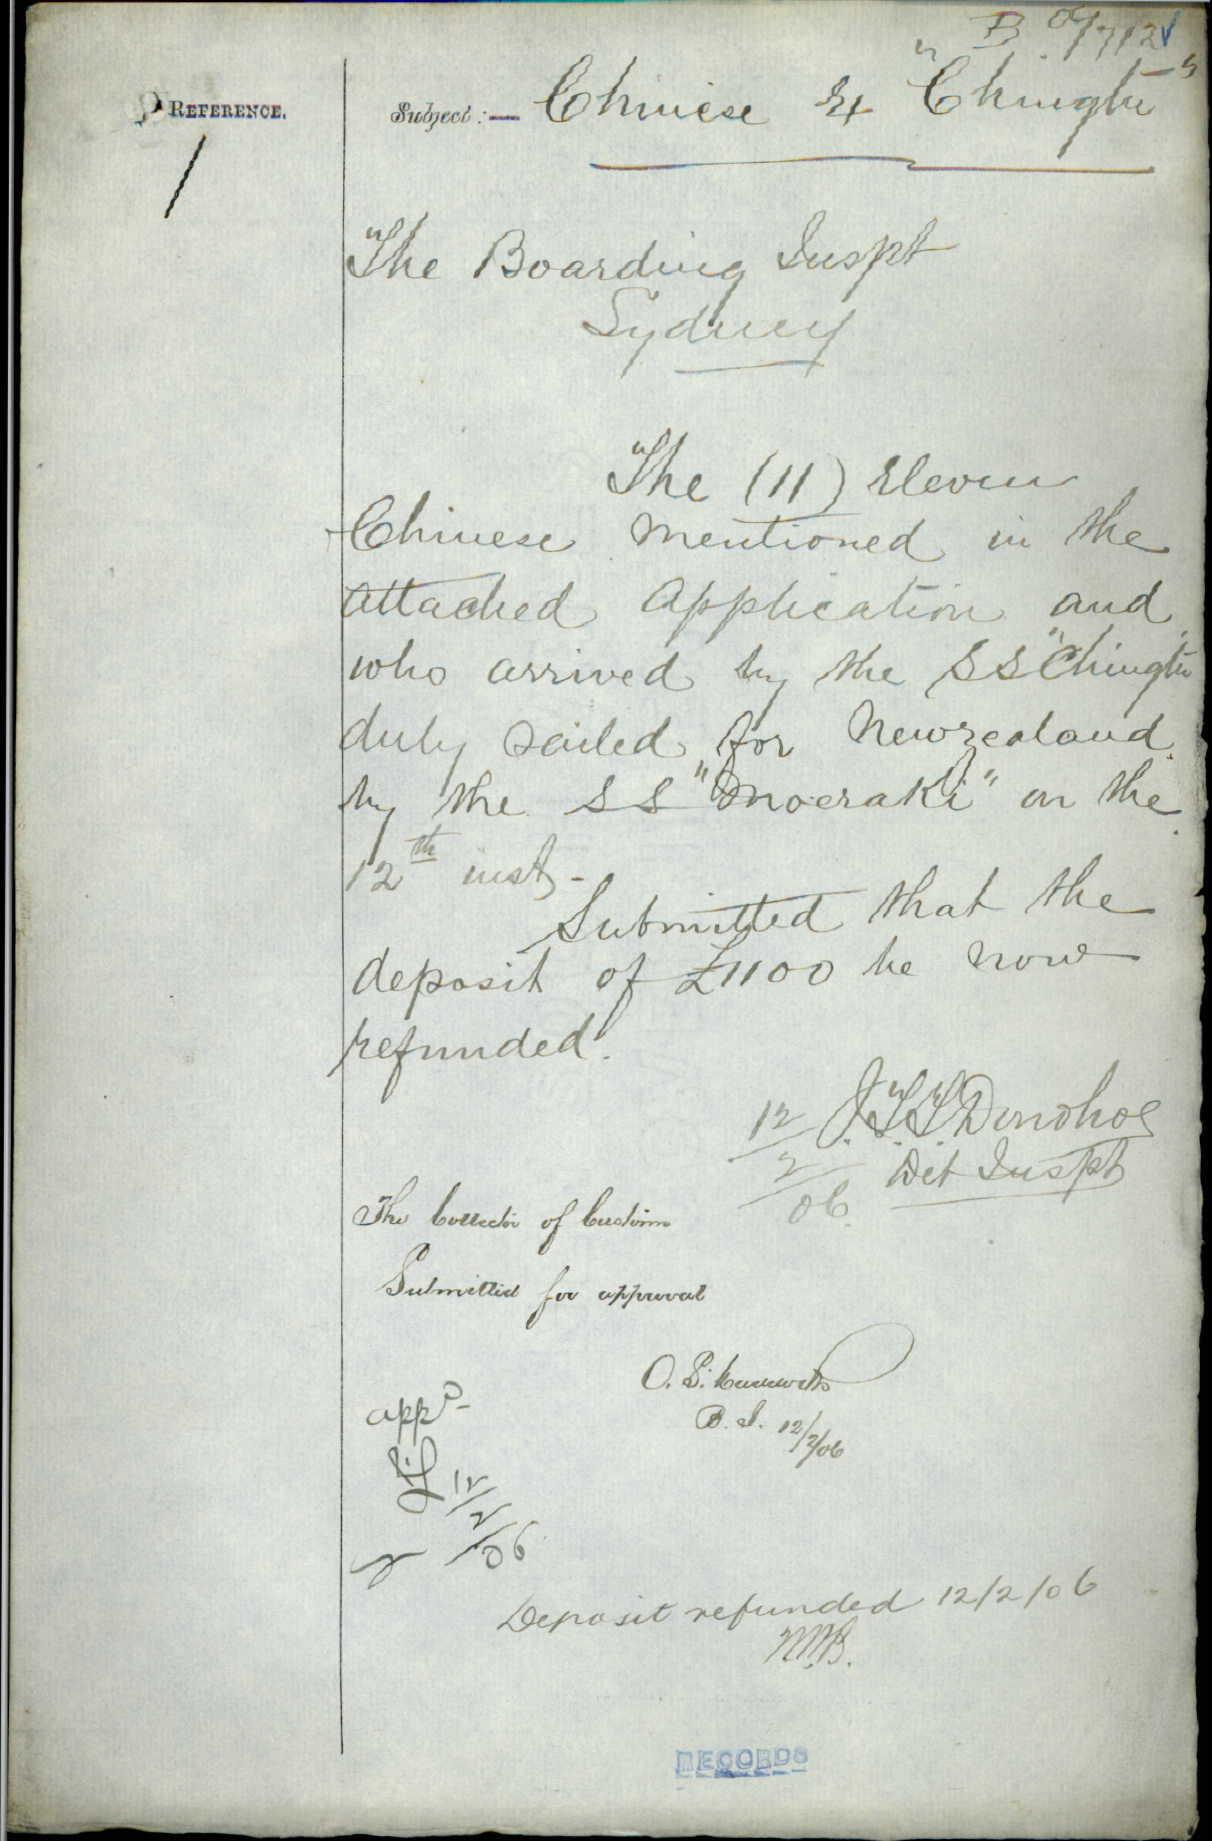 B 06/712
REFERENCE.
Subject:— Chinese ex "Chingtu"
The Boarding Inspt
Sydney
The (11) Eleven
Chinese mentioned in the
attached application and
who arrived by the SS "Chingtu"
duly sailed for Newzealand
by the SS "Moeraki" on the
12th inst.-
Submitted that the
deposit of £1100 be now
refunded.
J.T.T. Donohoe
Det Inspt
12/2/06.
The Collector of Customs
Submitted for approval
O. S.
B. I. 12/2/06
appd-
12/2/06
Deposit refunded 12/2/06
RECORDS